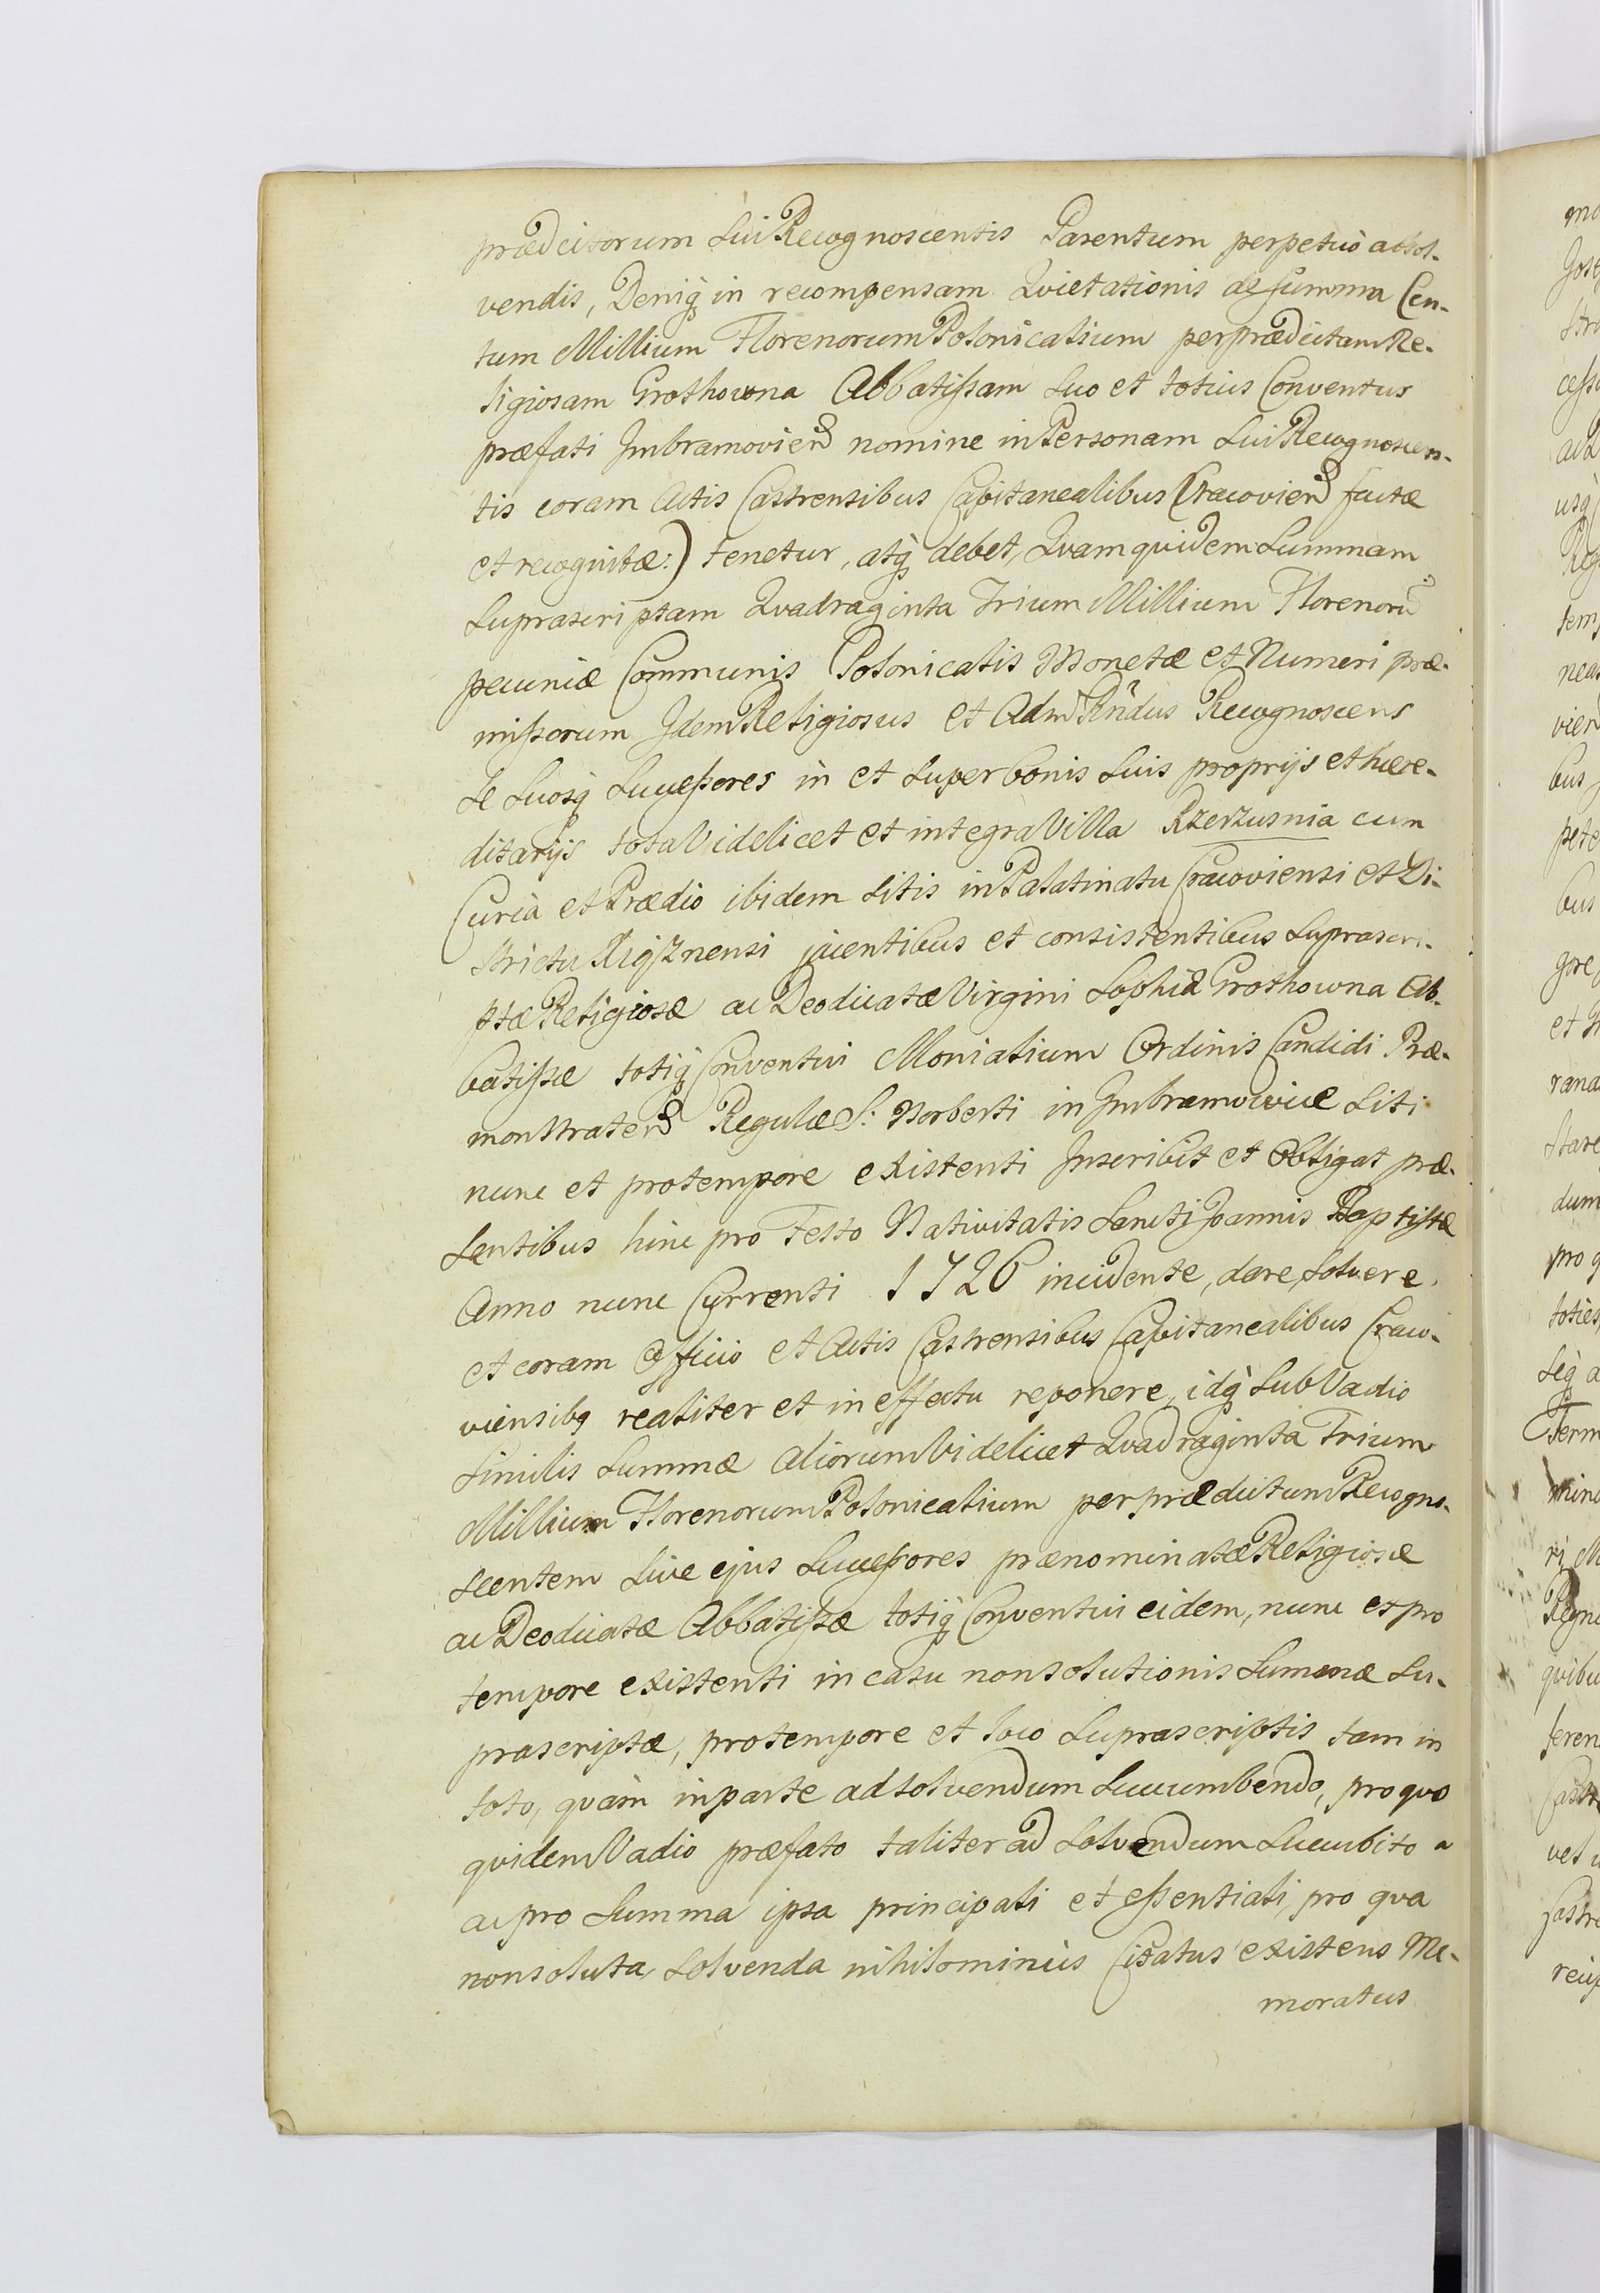 prædictorum Sui Recognoscentis Parentum perpetuò absol-
vendis, Deniq; in recompensam Quietationis de summa Cen-
tum Millium Florenorum Polonicalium per prædictam Re-
ligiosam Grothowna Abbatißam Suo et totius Conventus
præfati Imbramovien nomine in Personam Sui Recognoscen-
tis coram Actis Castrensibus Capitanealibus Cracovien factæ
et recognitæ:) tenetur, atq; debet, Quam quidem Summam
Suprascriptam Quadraginta Trium Millium Florenorũ
pecuniæ Communis Polonicalis Monetæ et Numeri præ-
mißorum Idem Religiosus et Adm Rñdus Recognoscens
Se Suosq; Succeßores in et Super bonis Suis proprijs et hære-
ditarijs tota Videlicet et integra Villa Rzerzusnia cum
Curia et Prædio ibidem Sitis in Palatinatu Cracoviensi et Di-
strictu Xiąznensi jacentibus et consistentibus Suprascri-
ptæ Religiosæ ac Deodicatæ Virgini Sophiæ Grothowna Ab-
batißæ totiq; Conventui Monialium Ordinis Candidi Præ-
monstraten Regulæ S: Norberti in Imbramowice Siti
nunc et pro tempore existenti Inscribit et Obligat præ-
sentibus hinc pro Festo Nativitatis Sancti Joannis Baptistæ
Anno nunc Currenti 1726 incidente, dare, Solvere
et coram Officio et Actis Castrensibus Capitanealibus Craco-
viensibq realiter et in effectu reponere, idq; Sub Vadio
Similis Summæ Aliorum Videlicet Quadraginta Trium
Millium Florenorum Polonicalium per prædictum Recogno-
scentem Sive ejus Succeßores prænominatæ Religiosæ
ac Deodicatæ Abbatißæ totiq; Conventui eidem, nunc et pro
tempore existenti in casu non solutionis Summæ Su-
prascriptæ, pro tempore et loco Suprascriptis tam in
toto, quàm in parte ad solvendum Succumbendo, pro quo
quidem Vadio præfato taliter ad Solvendum Succubito
ac pro Summa ipsa principali et eßentiali, pro qua
non soluta Solvenda nihilominùs Citatus existens Me-
moratus